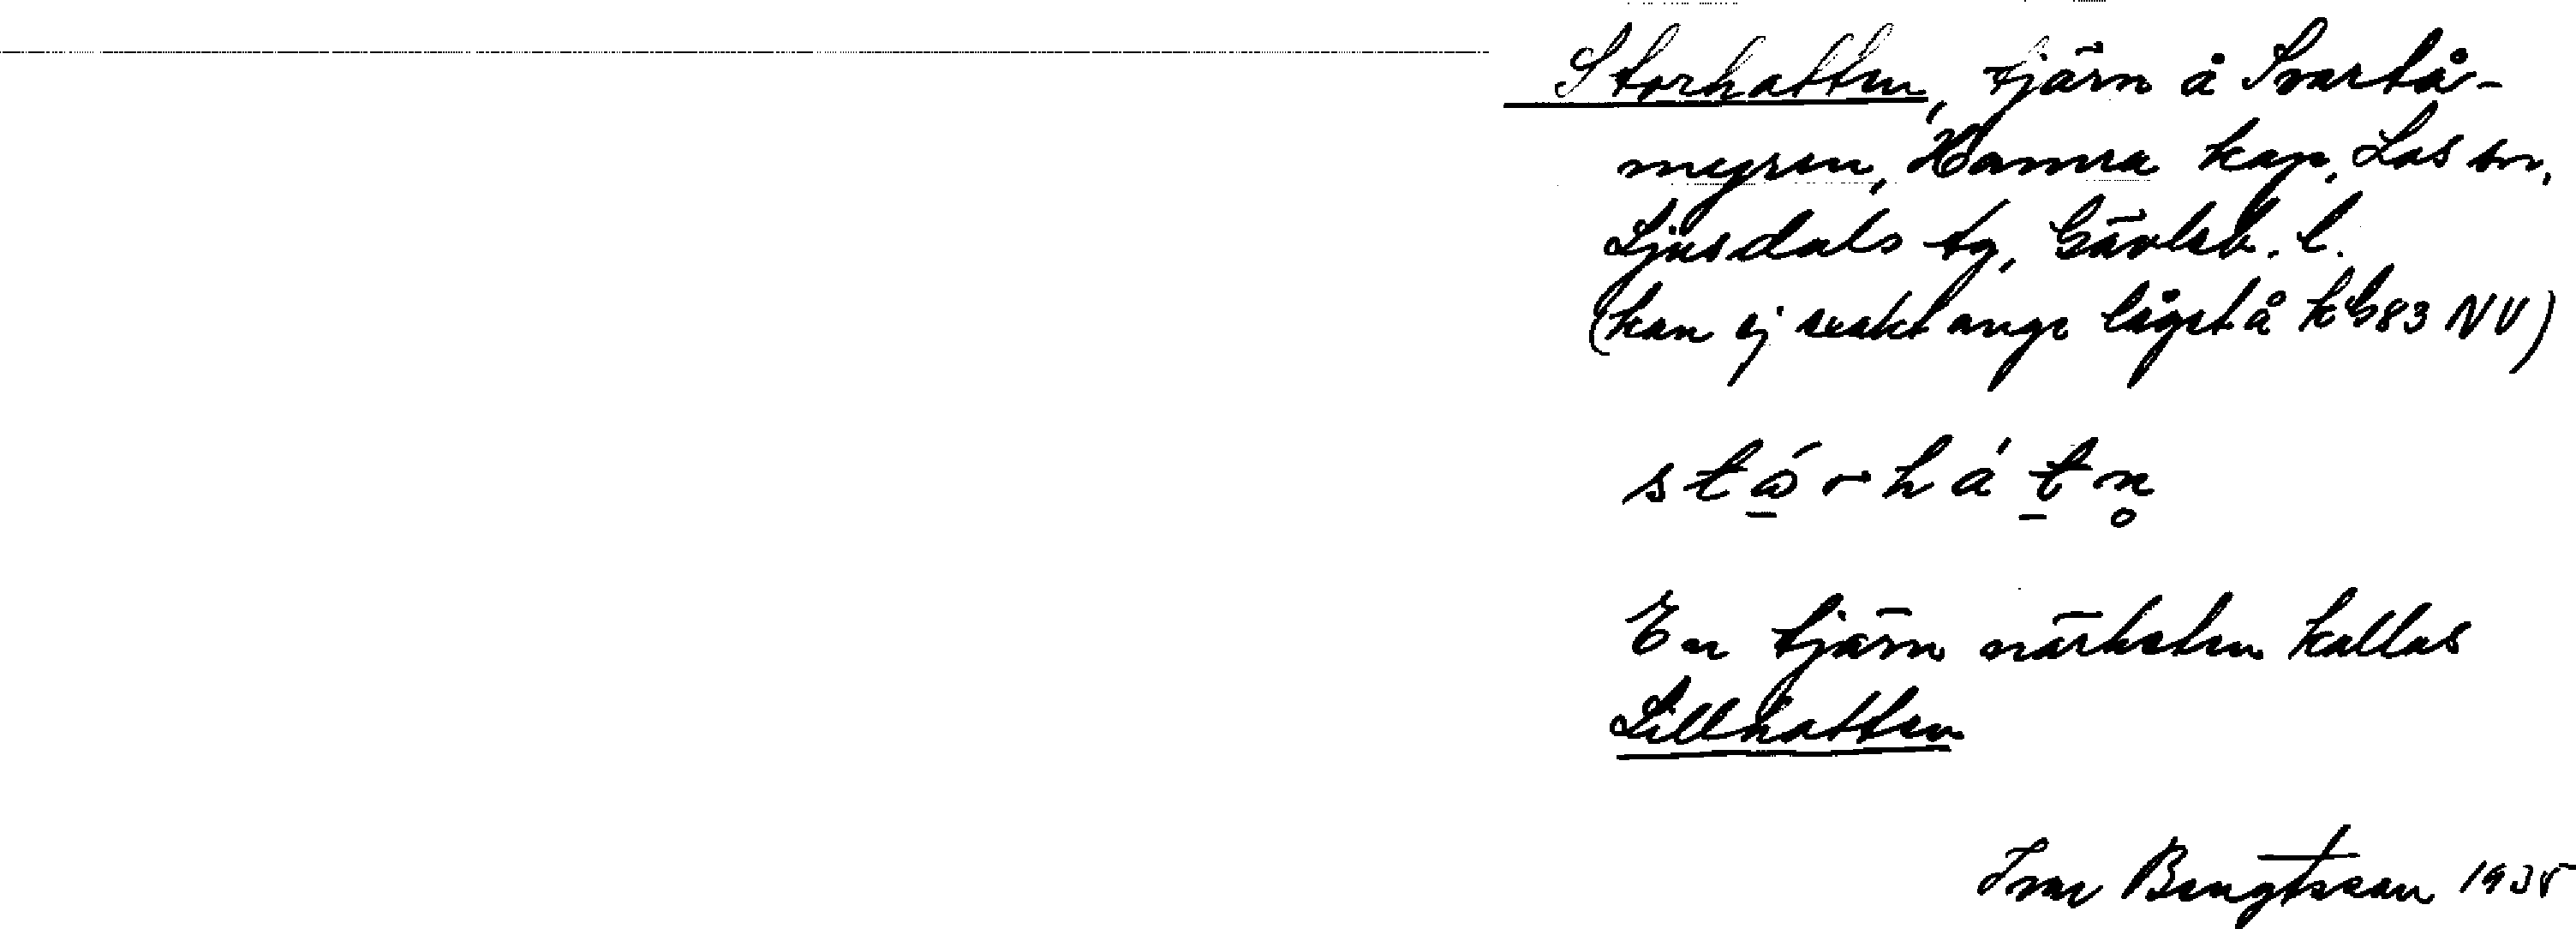 Storhatten, tjärn å Svartå-
myren, Hamra kap. Los sn,
Ljusdals tg, Gävleb. l.
(kan ej exakt ange läget å kb 83 NV)
stɷ́rhátn̥
En tjärn närheten kallas
Lillhatten
Ivar Bengtsson 1935